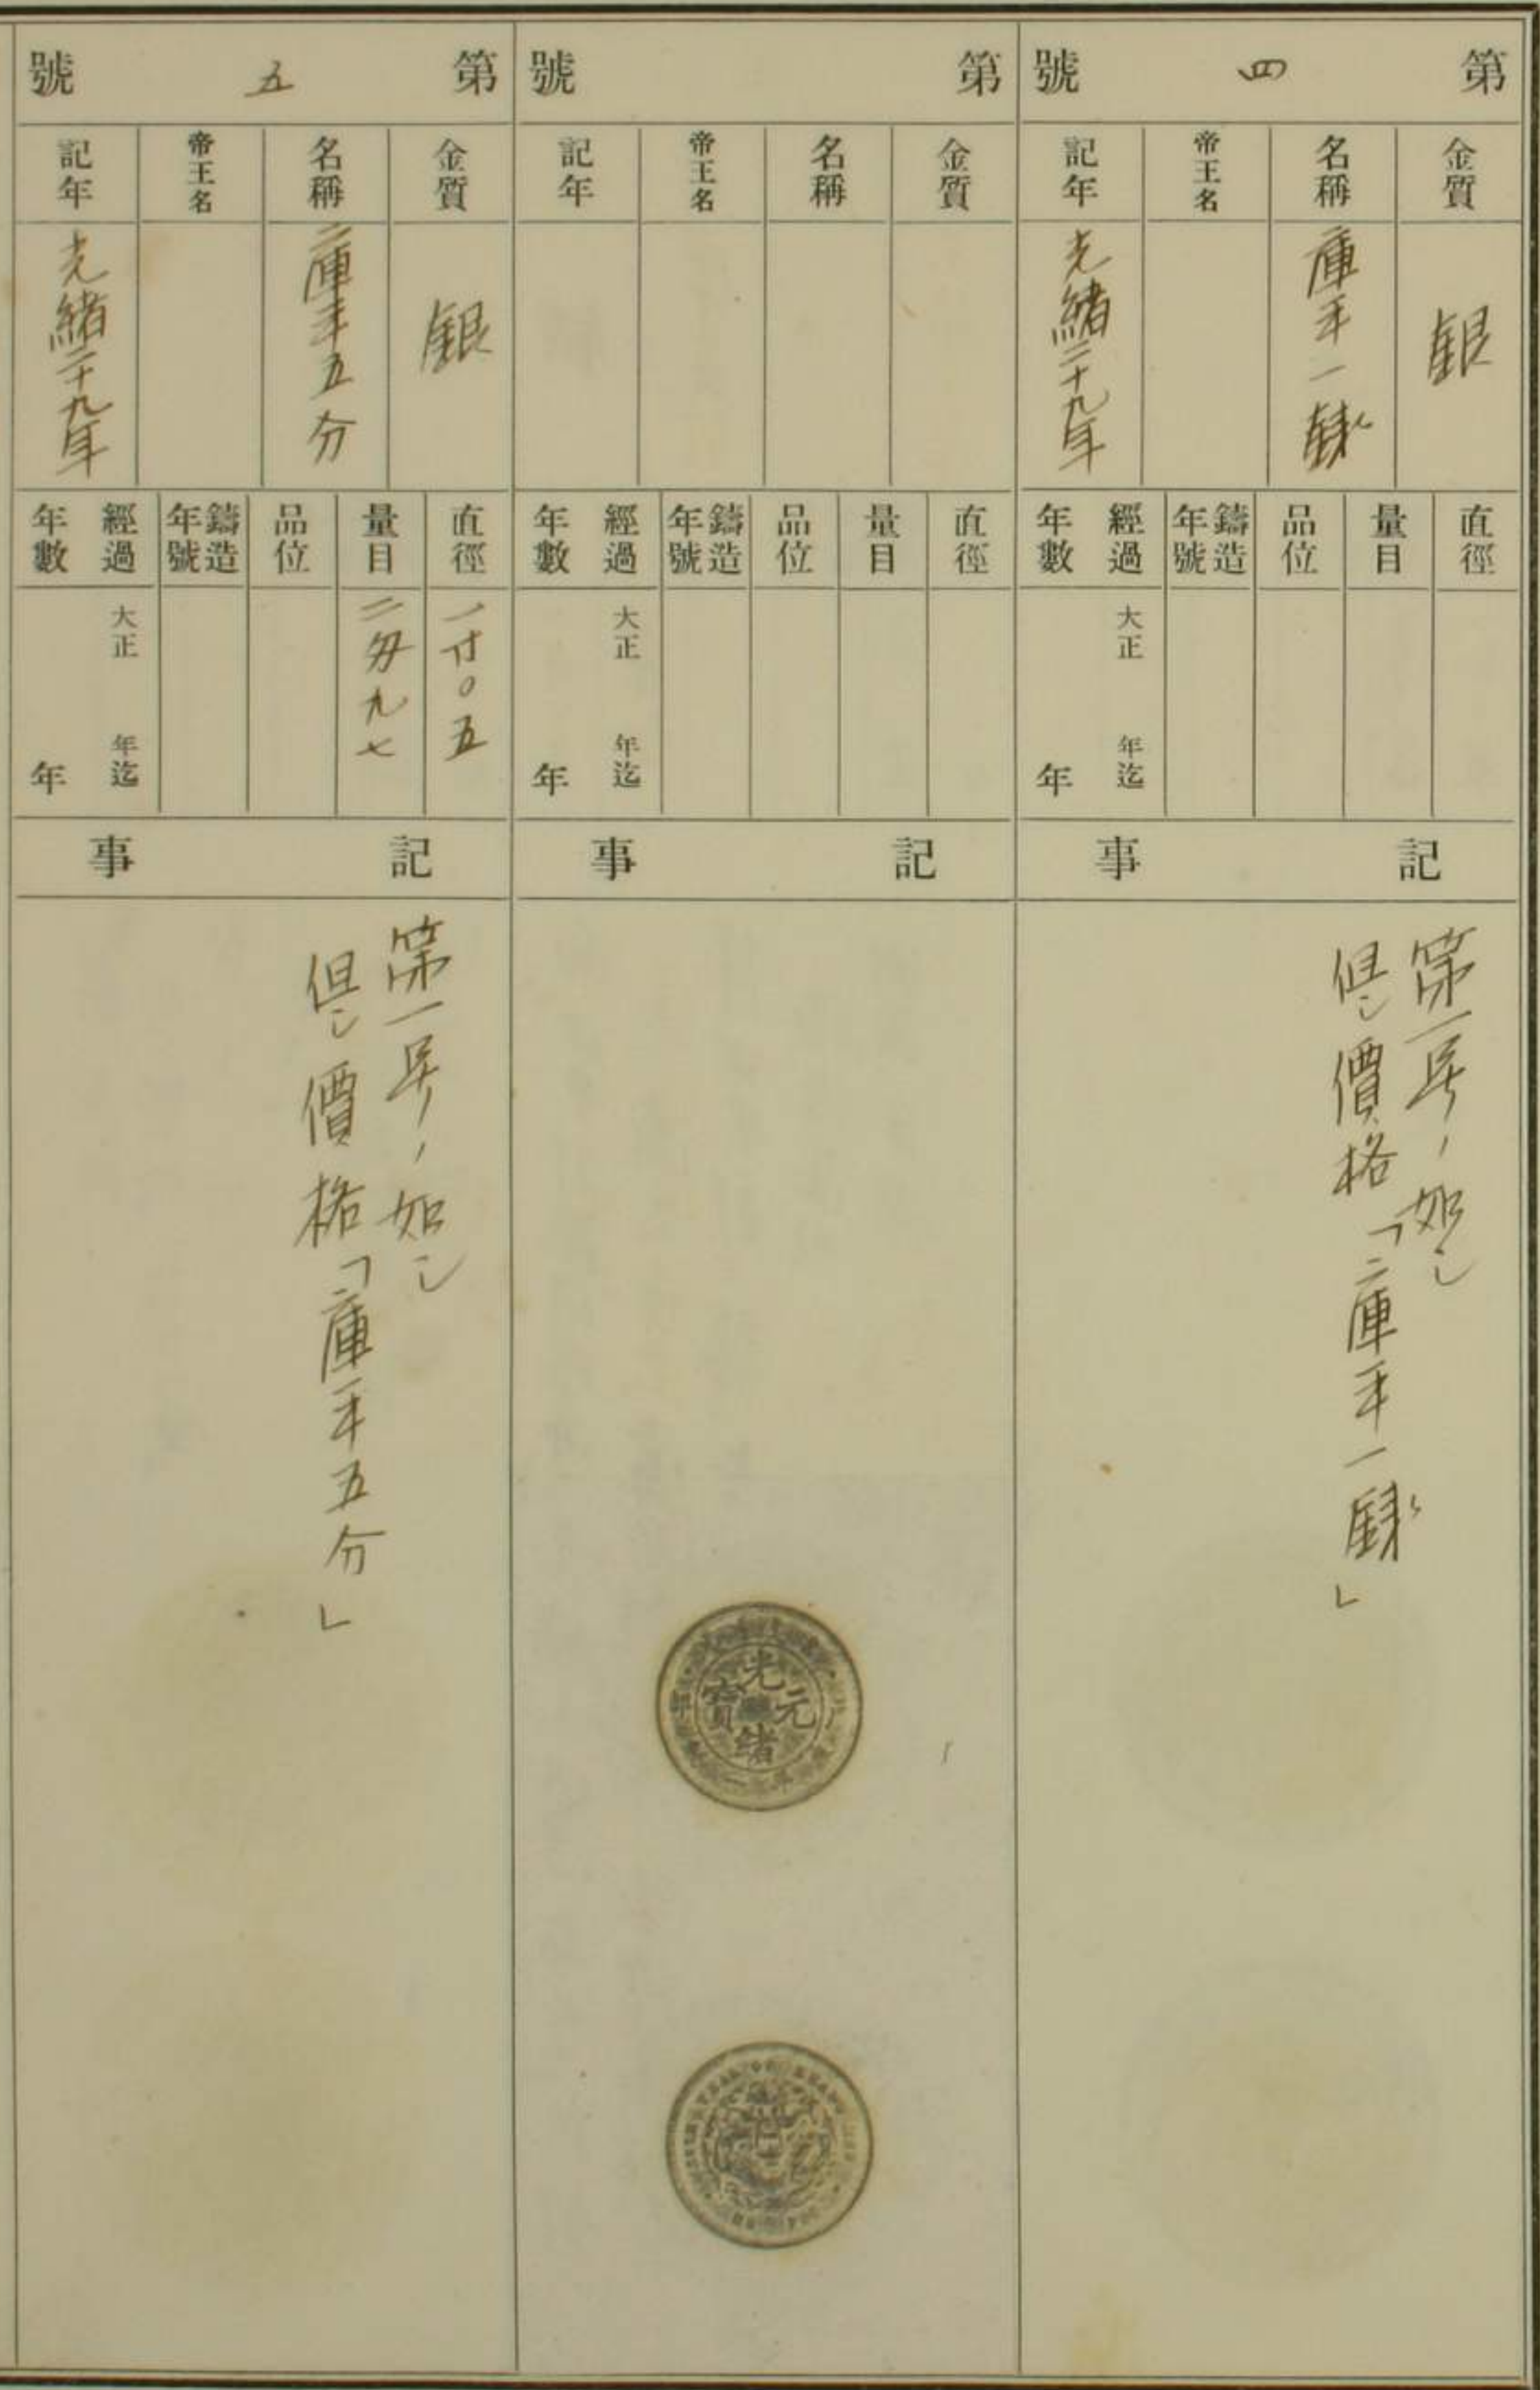 第四號
金質
銀
名稱
庫平一錢
帝王名
記年
光緒二十九年
直徑
量目
品位
鑄造年號
經過年數
大正 年迄
年
記事
第一号ノ如シ
但シ價格「庫平一錢」
第 號
金質
名稱
帝王名
記年
直徑
量目
品位
鑄造年號
經過年數
大正 年迄
年
記事
光緒元寶
第五號
金質
銀
名稱
庫平五分
帝王名
記年
光緒二十九年
直徑
一寸〇五
量目
二匁九七
品位
鑄造年號
經過年數
大正 年迄
年
記事
第一号ノ如シ
但シ價格「庫平五分」